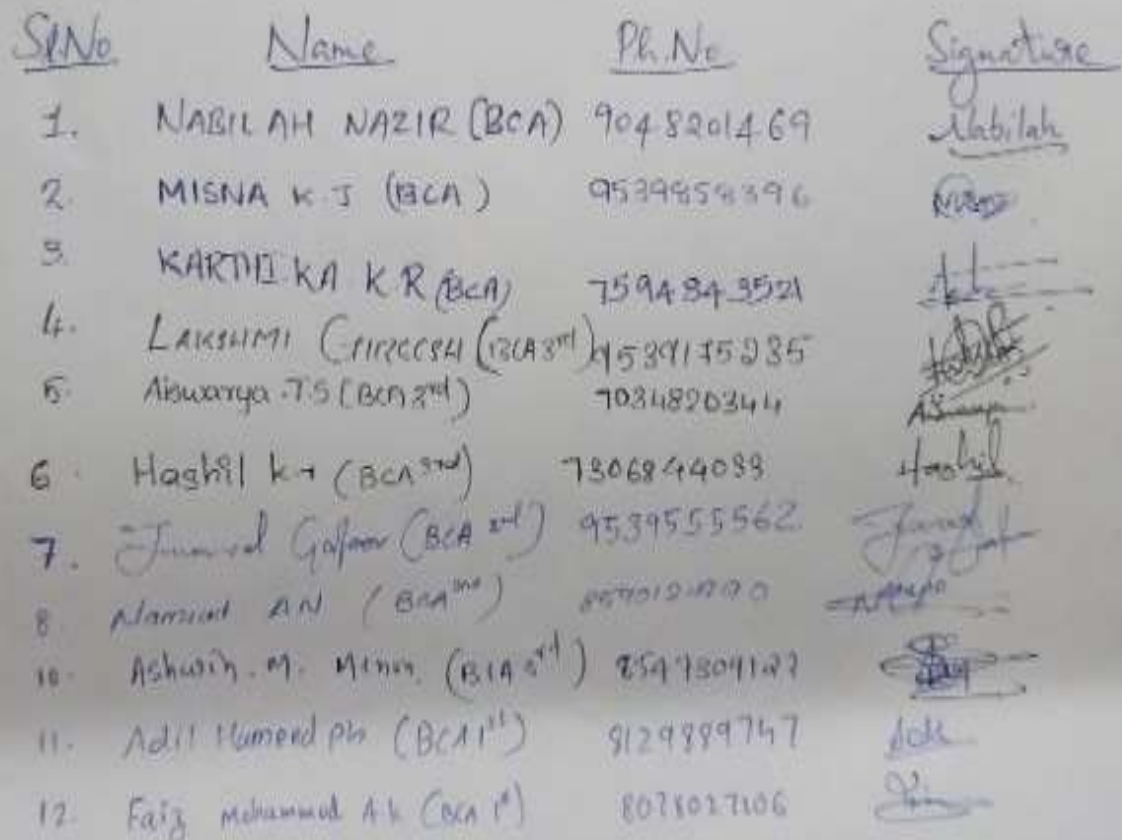 Sl.No Name Ph.No Signature
1. NABILAH NAZIR (BCA) 9048201469 Nabilah
2. MISNA K.J (BCA) 9539858396
3. KARTHIKA K R (BCA) 7594843521
4. LAKSHMI GIREESH (BCA 3rd) 9539175235
5. Aiswarya .T.S (BCA 3rd) 7034820344
6. Hashil k.t (BCA 3rd) 7306844033 Hashil
7. Gafoor (BCA 3rd) 9539555562
8. AN (BCA
10. Ashwin. M. Menon (BCA 3rd)
11. Adil Hameed ph (BCA 1st) 8129889747 Adil
12. Faiz Mohammed A.k (BCA 1st)